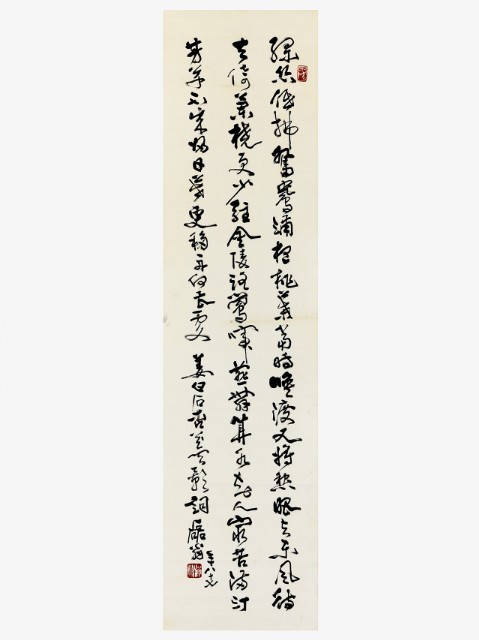 綠絲低拂鴛鴦浦想桃葉當時喚渡又將愁眼與春風待
去倚蘭橈更少駐金陵路鶯啼燕舞算潮水知人最苦滿汀
芳草不成歸日暮更移舟向甚處 姜白石杏花天影詞